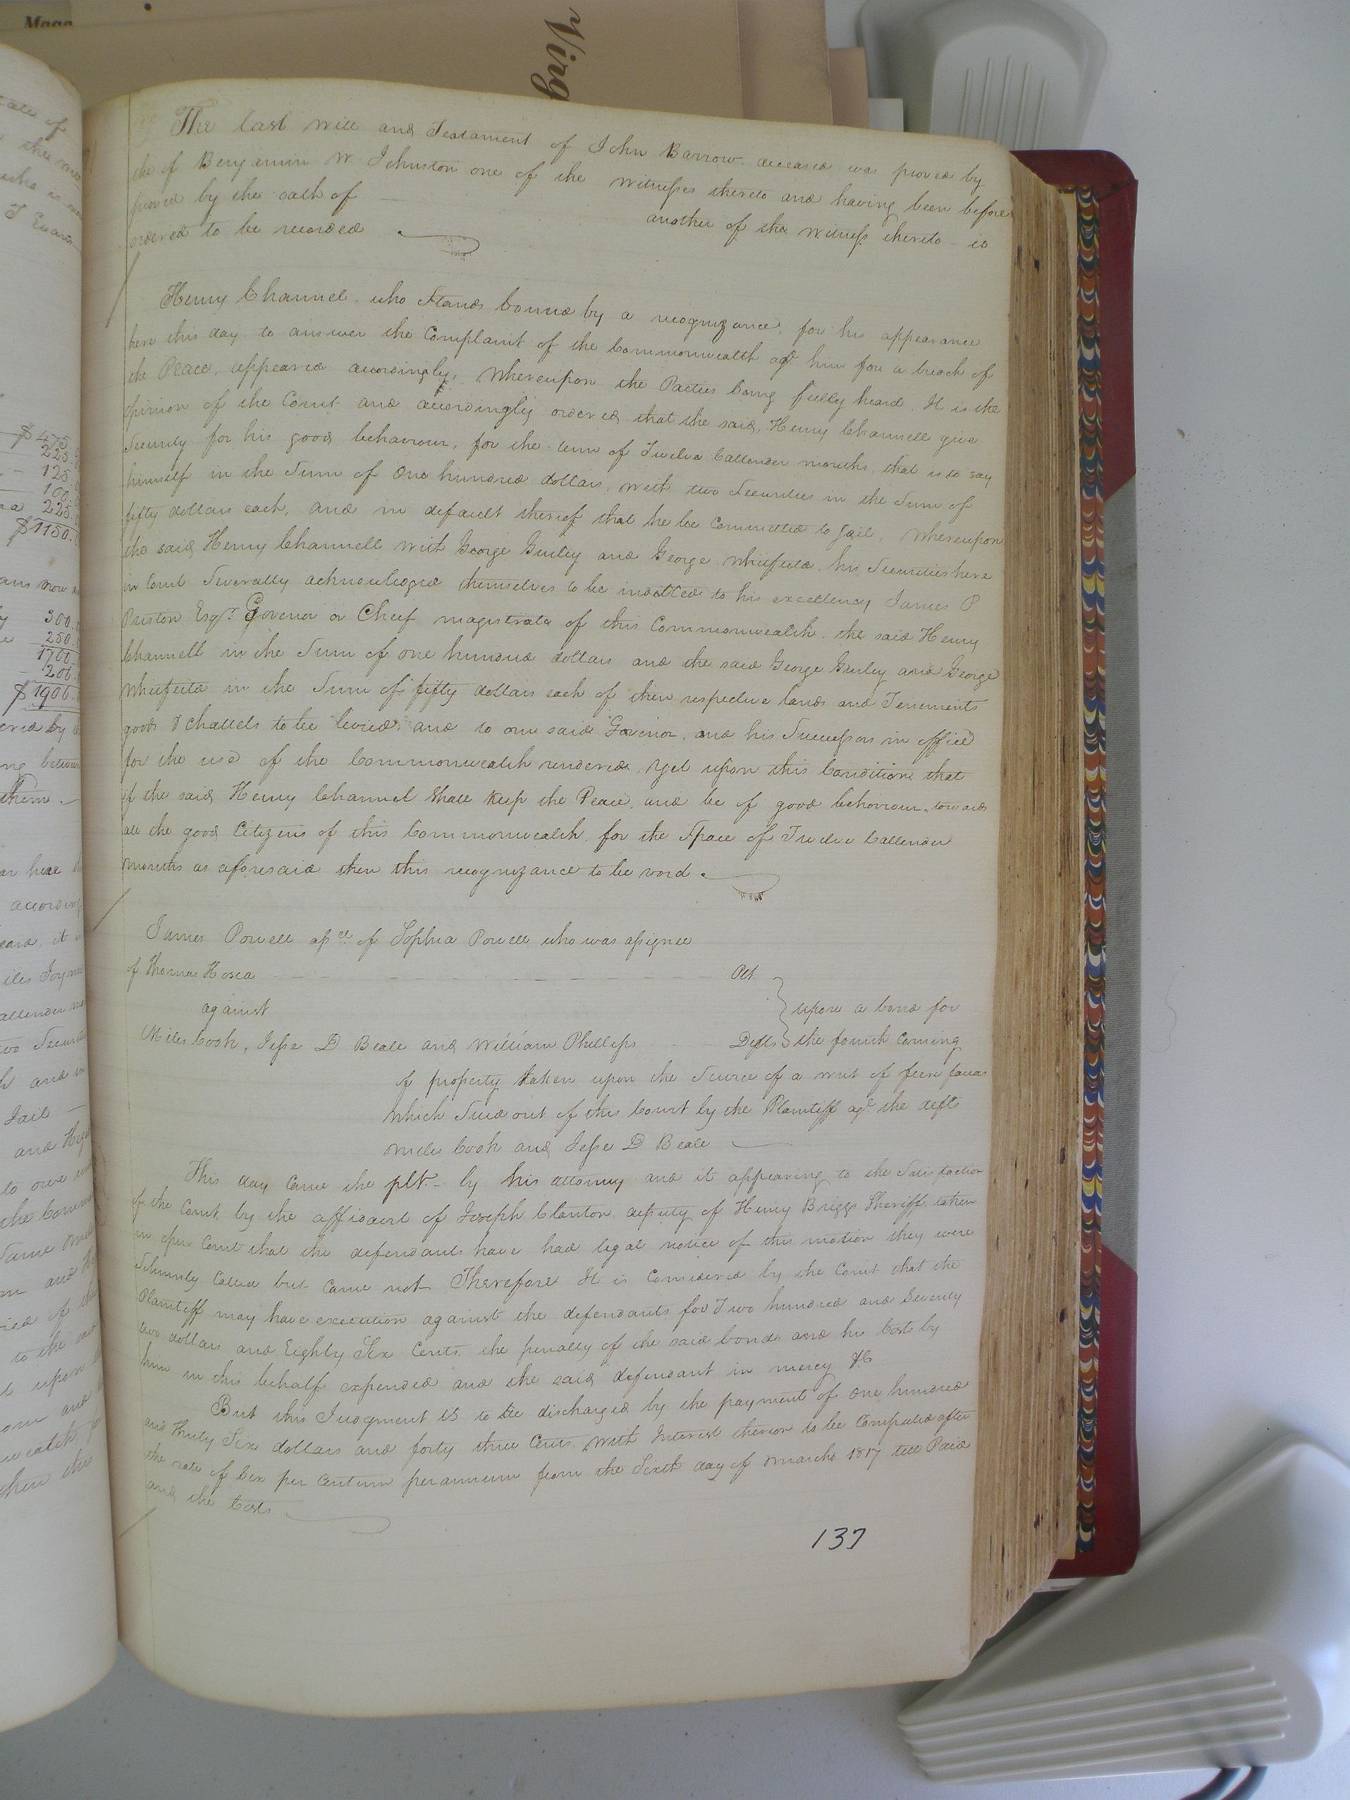 Maga
Virg
The last will and Testament of John Barrow deceased was proved by
the of Benjamin W. Johnston one of the witnesses thereto and having been before
proved by the oath of another of the witness thereto is
ordered to be recorded
Henry Channel, who stands bound by a recognizance, for his appearance
here this day to answer the Complaint of the Commonwealth agt. him for a breach of
the Peace, appeared accordingly, Whereupon the Parties being fully heard. It is the
opinion of the Court and accordingly ordered that the said Henry Channell give
Security for his good behaviour, for the term of Twelve Callender months, that is to say
himself in the Sum of One hundred dollars, with two Securities in the Sum of
fifty dollars each, and in default thereof that he be Committed to Jail, Whereupon
the said Henry Channell with George Gurley and George Whitfield his Securities here
in Court Severally acknowledged themselves to be indebted to his excellency James P
Preston Esqr. Govenor or Cheif magistrate of this Commonwealth. the said Henry
Channell in the Sum of one hundred dollars and the said George Gurley and George
Whitfield in the Sum of fifty dollars each of their respective lands and Tenements
goods & chattels to be levied, and to our said Govenor, and his Successors in office
for the use of the Commonwealth rendered. Yet upon this Condition that
if the said Henry Channel Shall Keep the Peace, and be of good behoviour towards
all the good Citizens of this Commonwealth for the Space of Twelve Callender
months as aforesaid then this recognizance to be void.
James Powell assee. of Sophia Powell who was assignee
of Thomas Hosea Plt
against upon a bond for
Miles Cook, Jesse D Beale and William Phillips Defts the fourth Coming
of property taken upon the Service of a writ of fieri facias
Which Sued out of this Court by the Plaintiff agt. the defts
Miles Cook and Jesse D Beale
This day Came the plt. by his attorney and it appearing to the Satisfaction
of the Court, by the affidavit of Joseph Clanton deputy of Henry Briggs Sheriff, taken
in open Court that the defendants have had legal notice of this motion they were
Solemnly Called but Came not Therefore It is Considered by the Court that the
Plaintiff may have execution against the defendants for Two hundred and Seventy
two dollars and Eighty Six Cents, the penalty of the said bond and his Costs by
him in this behalf expended and the said defendant in mercy &c
But this Judgment is to be discharged by the payment of One hundred
and thirty Six dollars and forty three Cents, With Interest thereon to be Computed after
the rate of Six per Centum per annum from the Sixth day of March 1817 till Paid
and the Costs
137